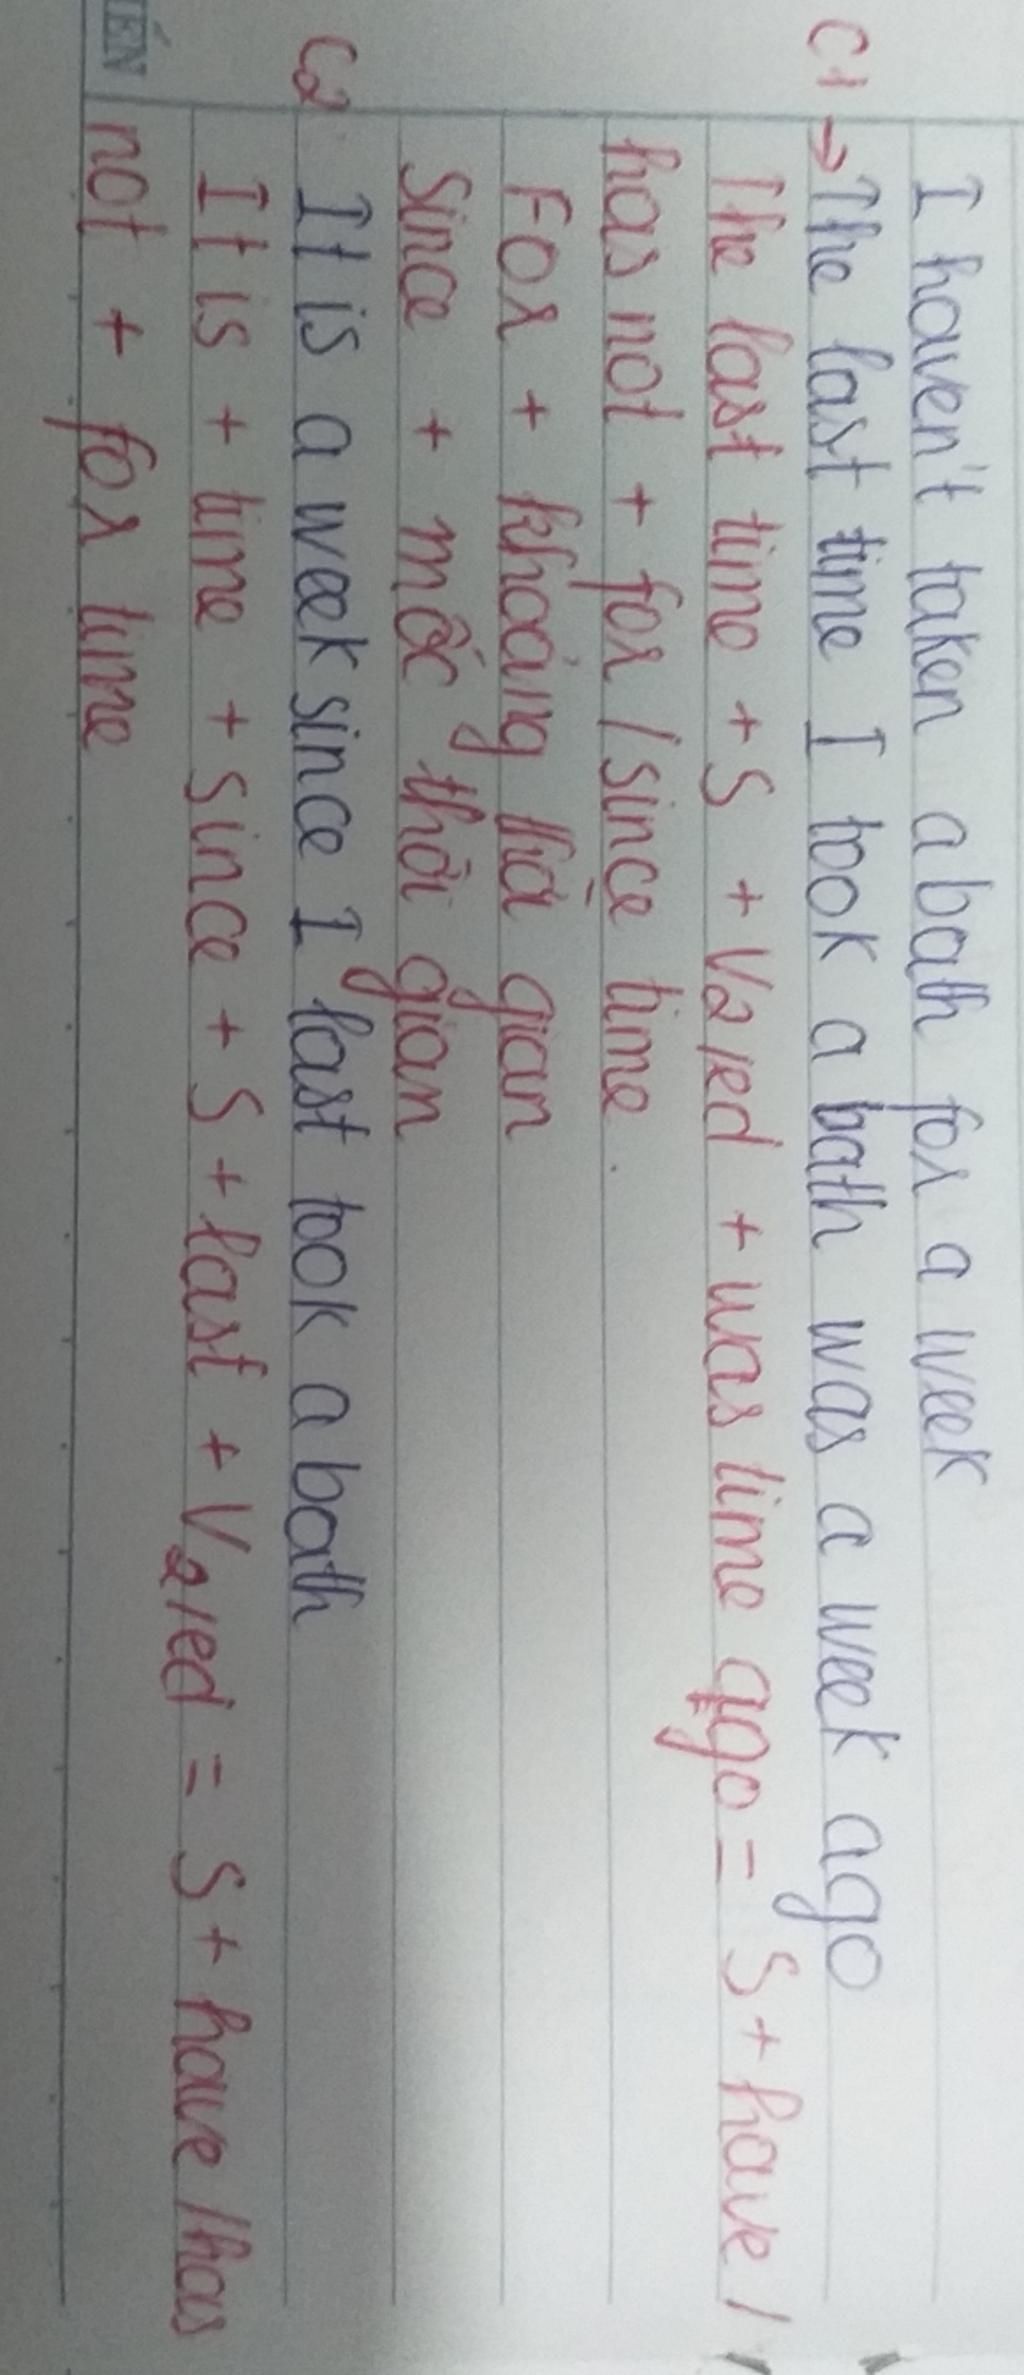 I haven't taken a bath for a week
C1 → The last time I took a bath was a week ago
The last time + S + V2/ed + was time ago = S + have /
has not + for / since time.
For + khoảng thời gian
Since + mốc thời gian
C2 It is a week since I last took a bath
It is + time + since + S + last + V2/ed = S + have / has
not + for time